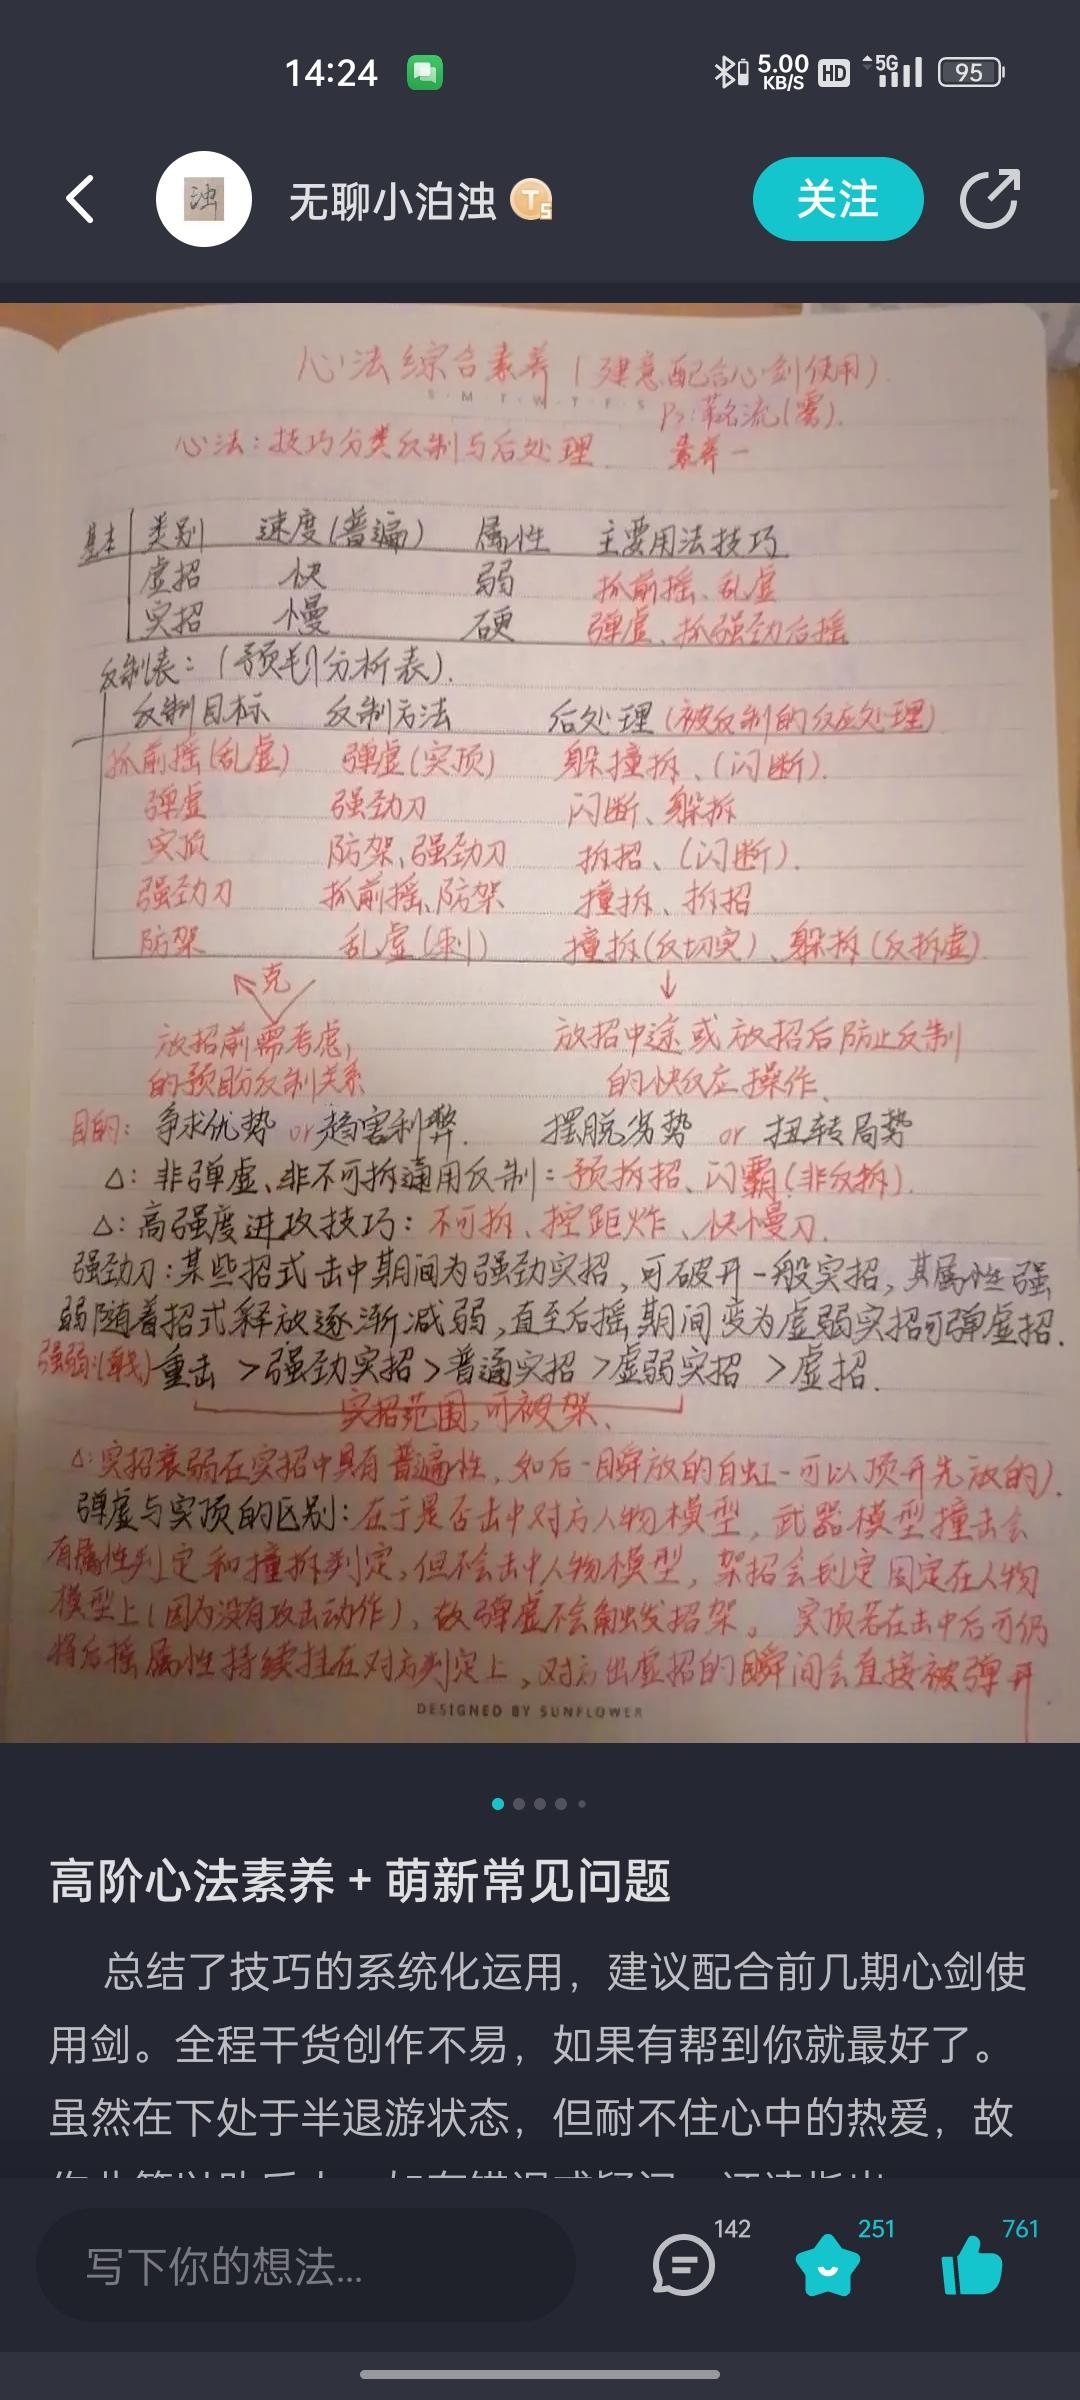 14:24
5.00 KB/S HD 5G 95
浊
无聊小泊浊 T5
关注
心法综合素养（建意配合心剑使用）
S M T W T F S
Ps:茗流(雾).
心法：技巧分类反制与后处理 素养一
基本 类别 速度(普遍) 属性 主要用法技巧
虚招 快 弱 抓前摇、乱虚
实招 慢 硬 弹虚、抓强劲后摇
反制表：(预判分析表).
反制目标 反制方法 后处理(被反制的反应处理)
抓前摇(乱虚) 弹虚(实顶) 躲撞拆、(闪断).
弹虚 强劲刀 闪断、躲拆
实顶 防架、强劲刀 拆招、(闪断).
强劲刀 抓前摇、防架 撞拆、拆招
防架 乱虚(刺) 撞拆(反切实)、躲拆(反拆虚)
克
放招前需考虑, 放招中途或放招后防止反制
的预防反制关系 的快反应操作、
目的：争求优势 or 趋害利弊. 摆脱劣势 or 扭转局势
△：非弹虚、非不可拆通用反制：预拆招、闪霸(非反拆).
△：高强度进攻技巧：不可拆、控距炸、快慢刀.
强劲刀：某些招式击中期间为强劲实招，可破开一般实招，其属性强
弱随着招式释放逐渐减弱，直至后摇期间变为虚弱实招可弹虚招.
强弱:重击 >强劲实招>普通实招>虚弱实招 >虚招.
实招范围,可被架、
△:实招衰弱在实招中具有普遍性，如后一瞬放的白虹一可以顶开先放的).
弹虚与实顶的区别：在于是否击中对方人物模型，武器模型撞击会
有属性判定和撞拆判定，但不会击中人物模型，架招会判定固定在人物
模型上(因为没有攻击动作)，故弹虚不会触发招架。 实顶若在击中后可仍
将后摇属性持续挂在对方判定上，对方出虚招的瞬间会直接被弹开
DESIGNED BY SUNFLOWER
高阶心法素养 + 萌新常见问题
总结了技巧的系统化运用，建议配合前几期心剑使
用剑。全程干货创作不易，如果有帮到你就最好了。
虽然在下处于半退游状态，但耐不住心中的热爱，故
写下你的想法...
142
251
761